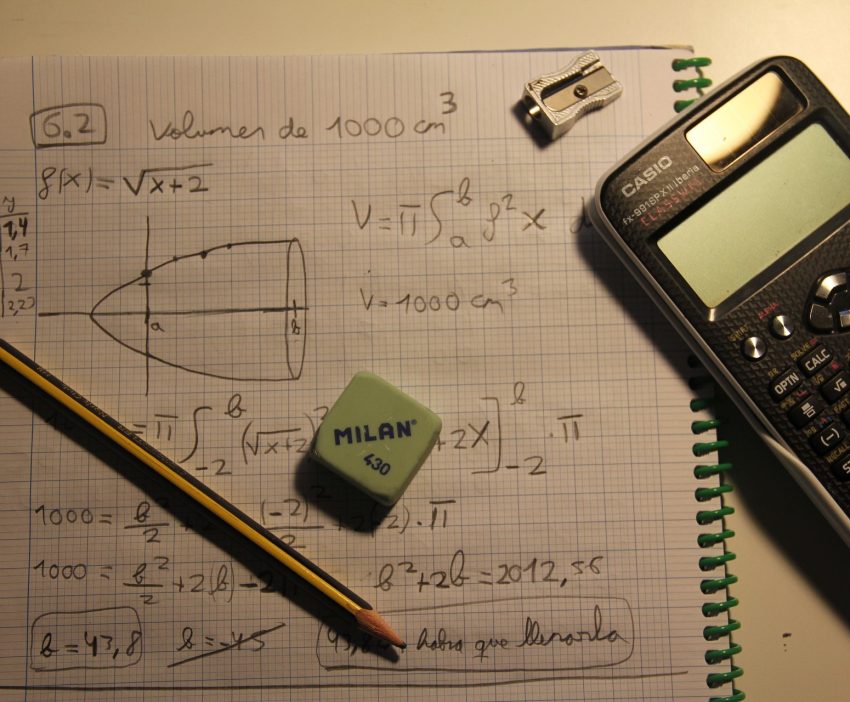 6.2 Volumen de 1000 cm³
f(x) = √x+2
y
1,4
1,7
2
V = π ∫ₐᵇ f² x
V = 1000 cm³
a
b
= π ∫₋₂ᵇ (√x+2)² +2x]₋₂ᵇ · π
1000 = b²/2 + (-2)²/2 · π
1000 = b²/2 + 2(b) - 2 b² + 2b = 2012,56
b = 43,8 b = -45 habra que llenarla
CASIO
fx-991SPX II Iberia
CLASSWIZ
OPTN
CALC
MILAN
430